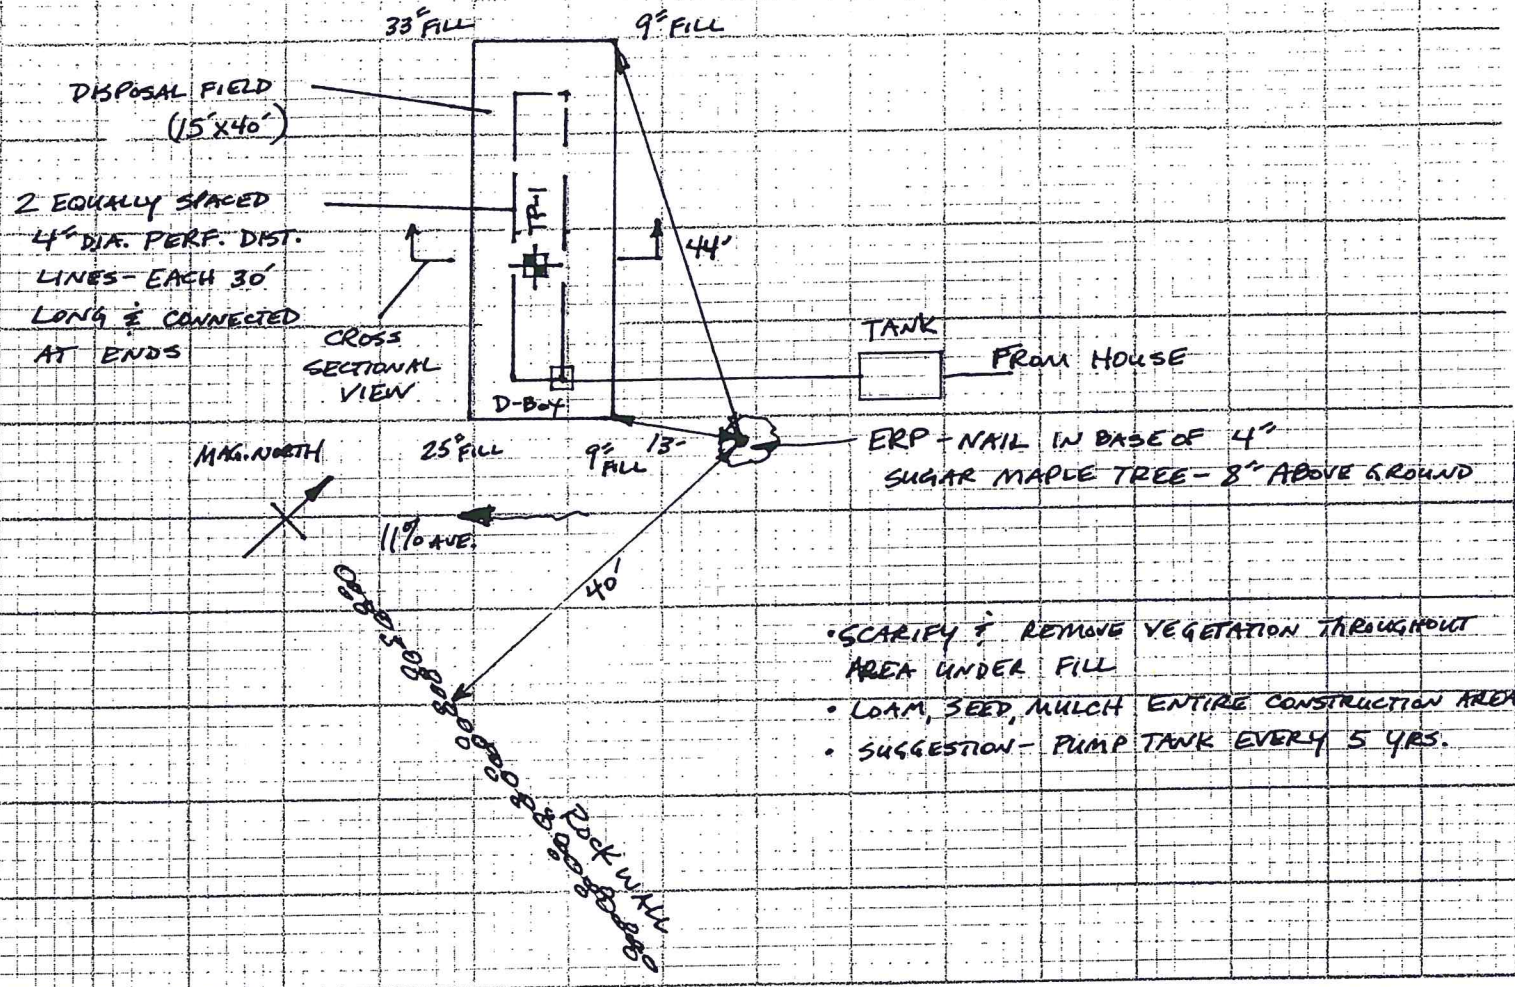 33" FILL
9" FILL
DISPOSAL FIELD
(15'X40')
2 EQUALLY SPACED
4" DIA. PERF. DIST.
LINES - EACH 30'
LONG & CONNECTED
AT ENDS
TP-1
44'
CROSS
SECTIONAL
VIEW
TANK
FROM HOUSE
D-BOX
25" FILL
9" FILL
13'
ERP - NAIL IN BASE OF 4"
SUGAR MAPLE TREE - 8" ABOVE GROUND
MAG. NORTH
11% AVE.
40'
ROCK WALL
• SCARIFY & REMOVE VEGETATION THROUGHOUT
AREA UNDER FILL
• LOAM, SEED, MULCH ENTIRE CONSTRUCTION AREA
• SUGGESTION - PUMP TANK EVERY 5 YRS.